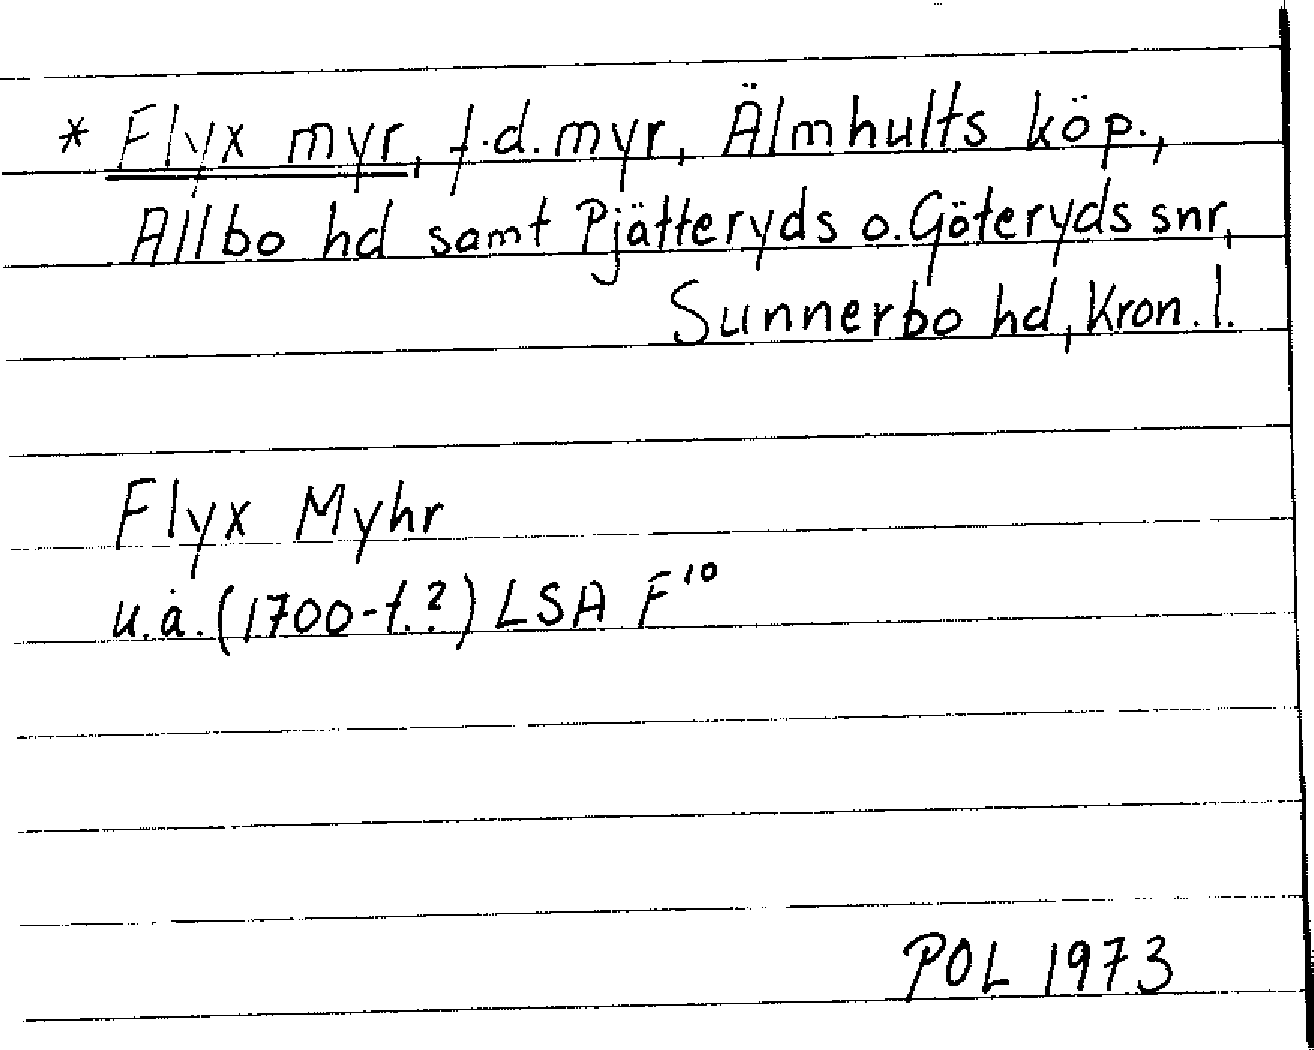 * Flyx myr, f.d. myr, Älmhults köp.,
Allbo hd samt Pjätteryds o. Göteryds snr,
Sunnerbo hd, Kron. l.
Flyx Myhr
u.å. (1700-t.?) LSA F¹⁰
POL 1973